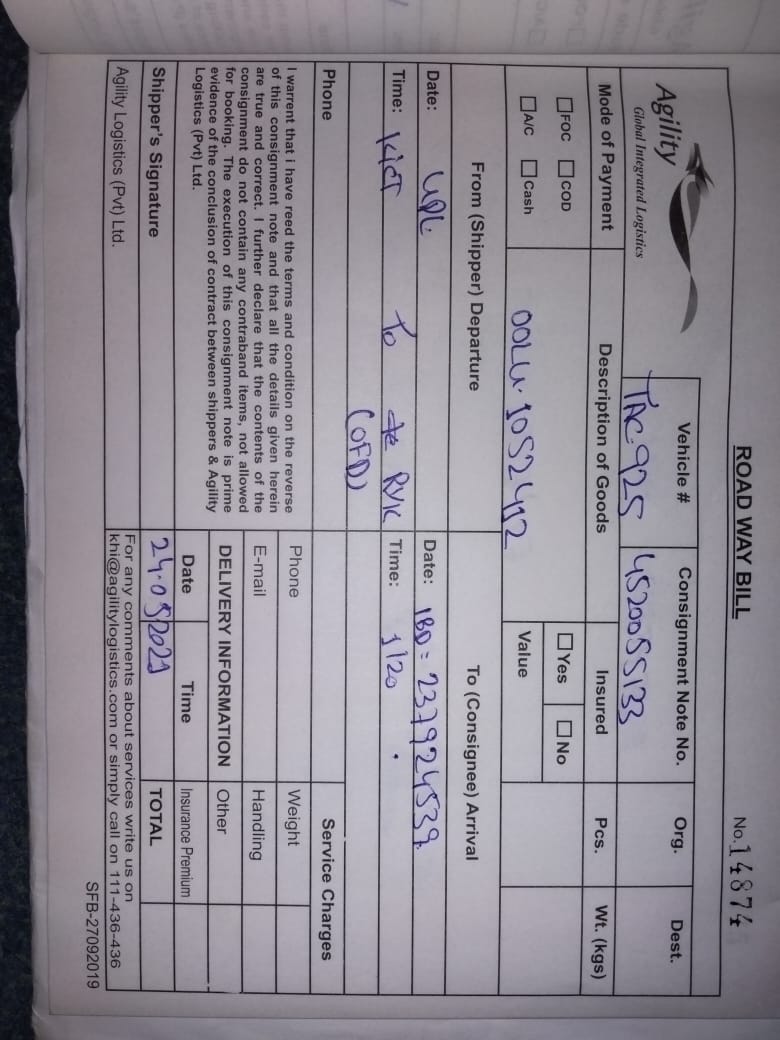 ROAD WAY BILL
No. 14874
Agility
Global Integrated Logistics
Vehicle #
Consignment Note No.
Org.
Dest.
TAC-925
4520055133
Mode of Payment
Description of Goods
Insured
Pcs.
Wt. (kgs)
FOC
COD
Yes
No
A/C
Cash
Value
From (Shipper) Departure
To (Consignee) Arrival
Date:
UPL
Date: IBD = 237924539
Time: KICT To RYK
Time: 1120
(OFD)
Phone
Service Charges
I warrent that i have reed the terms and condition on the reverse
of this consignment note and that all the details given herein
are true and correct. I further declare that the contents of the
consignment do not contain any contraband items, not allowed
for booking. The execution of this consignment note is prime
evidence of the conclusion of contract between shippers & Agility
Logistics (Pvt) Ltd.
Phone
Weight
E-mail
Handling
DELIVERY INFORMATION
Other
Date
Time
Insurance Premium
Shipper's Signature
24.05.2021
TOTAL
Agility Logistics (Pvt) Ltd.
For any comments about services write us on
khi@agilitylogistics.com or simply call on 111-436-436
SFB-27092019